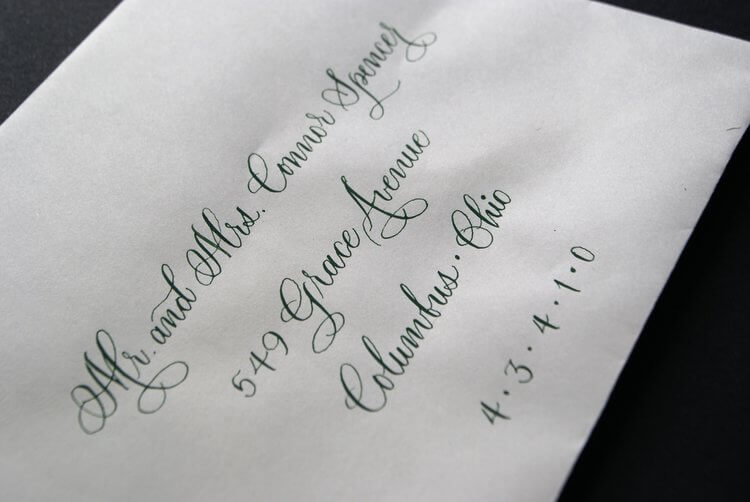 Mr. and Mrs. Connor Spencer
549 Grace Avenue
Columbus · Ohio
4 · 3 · 4 · 1 · 0